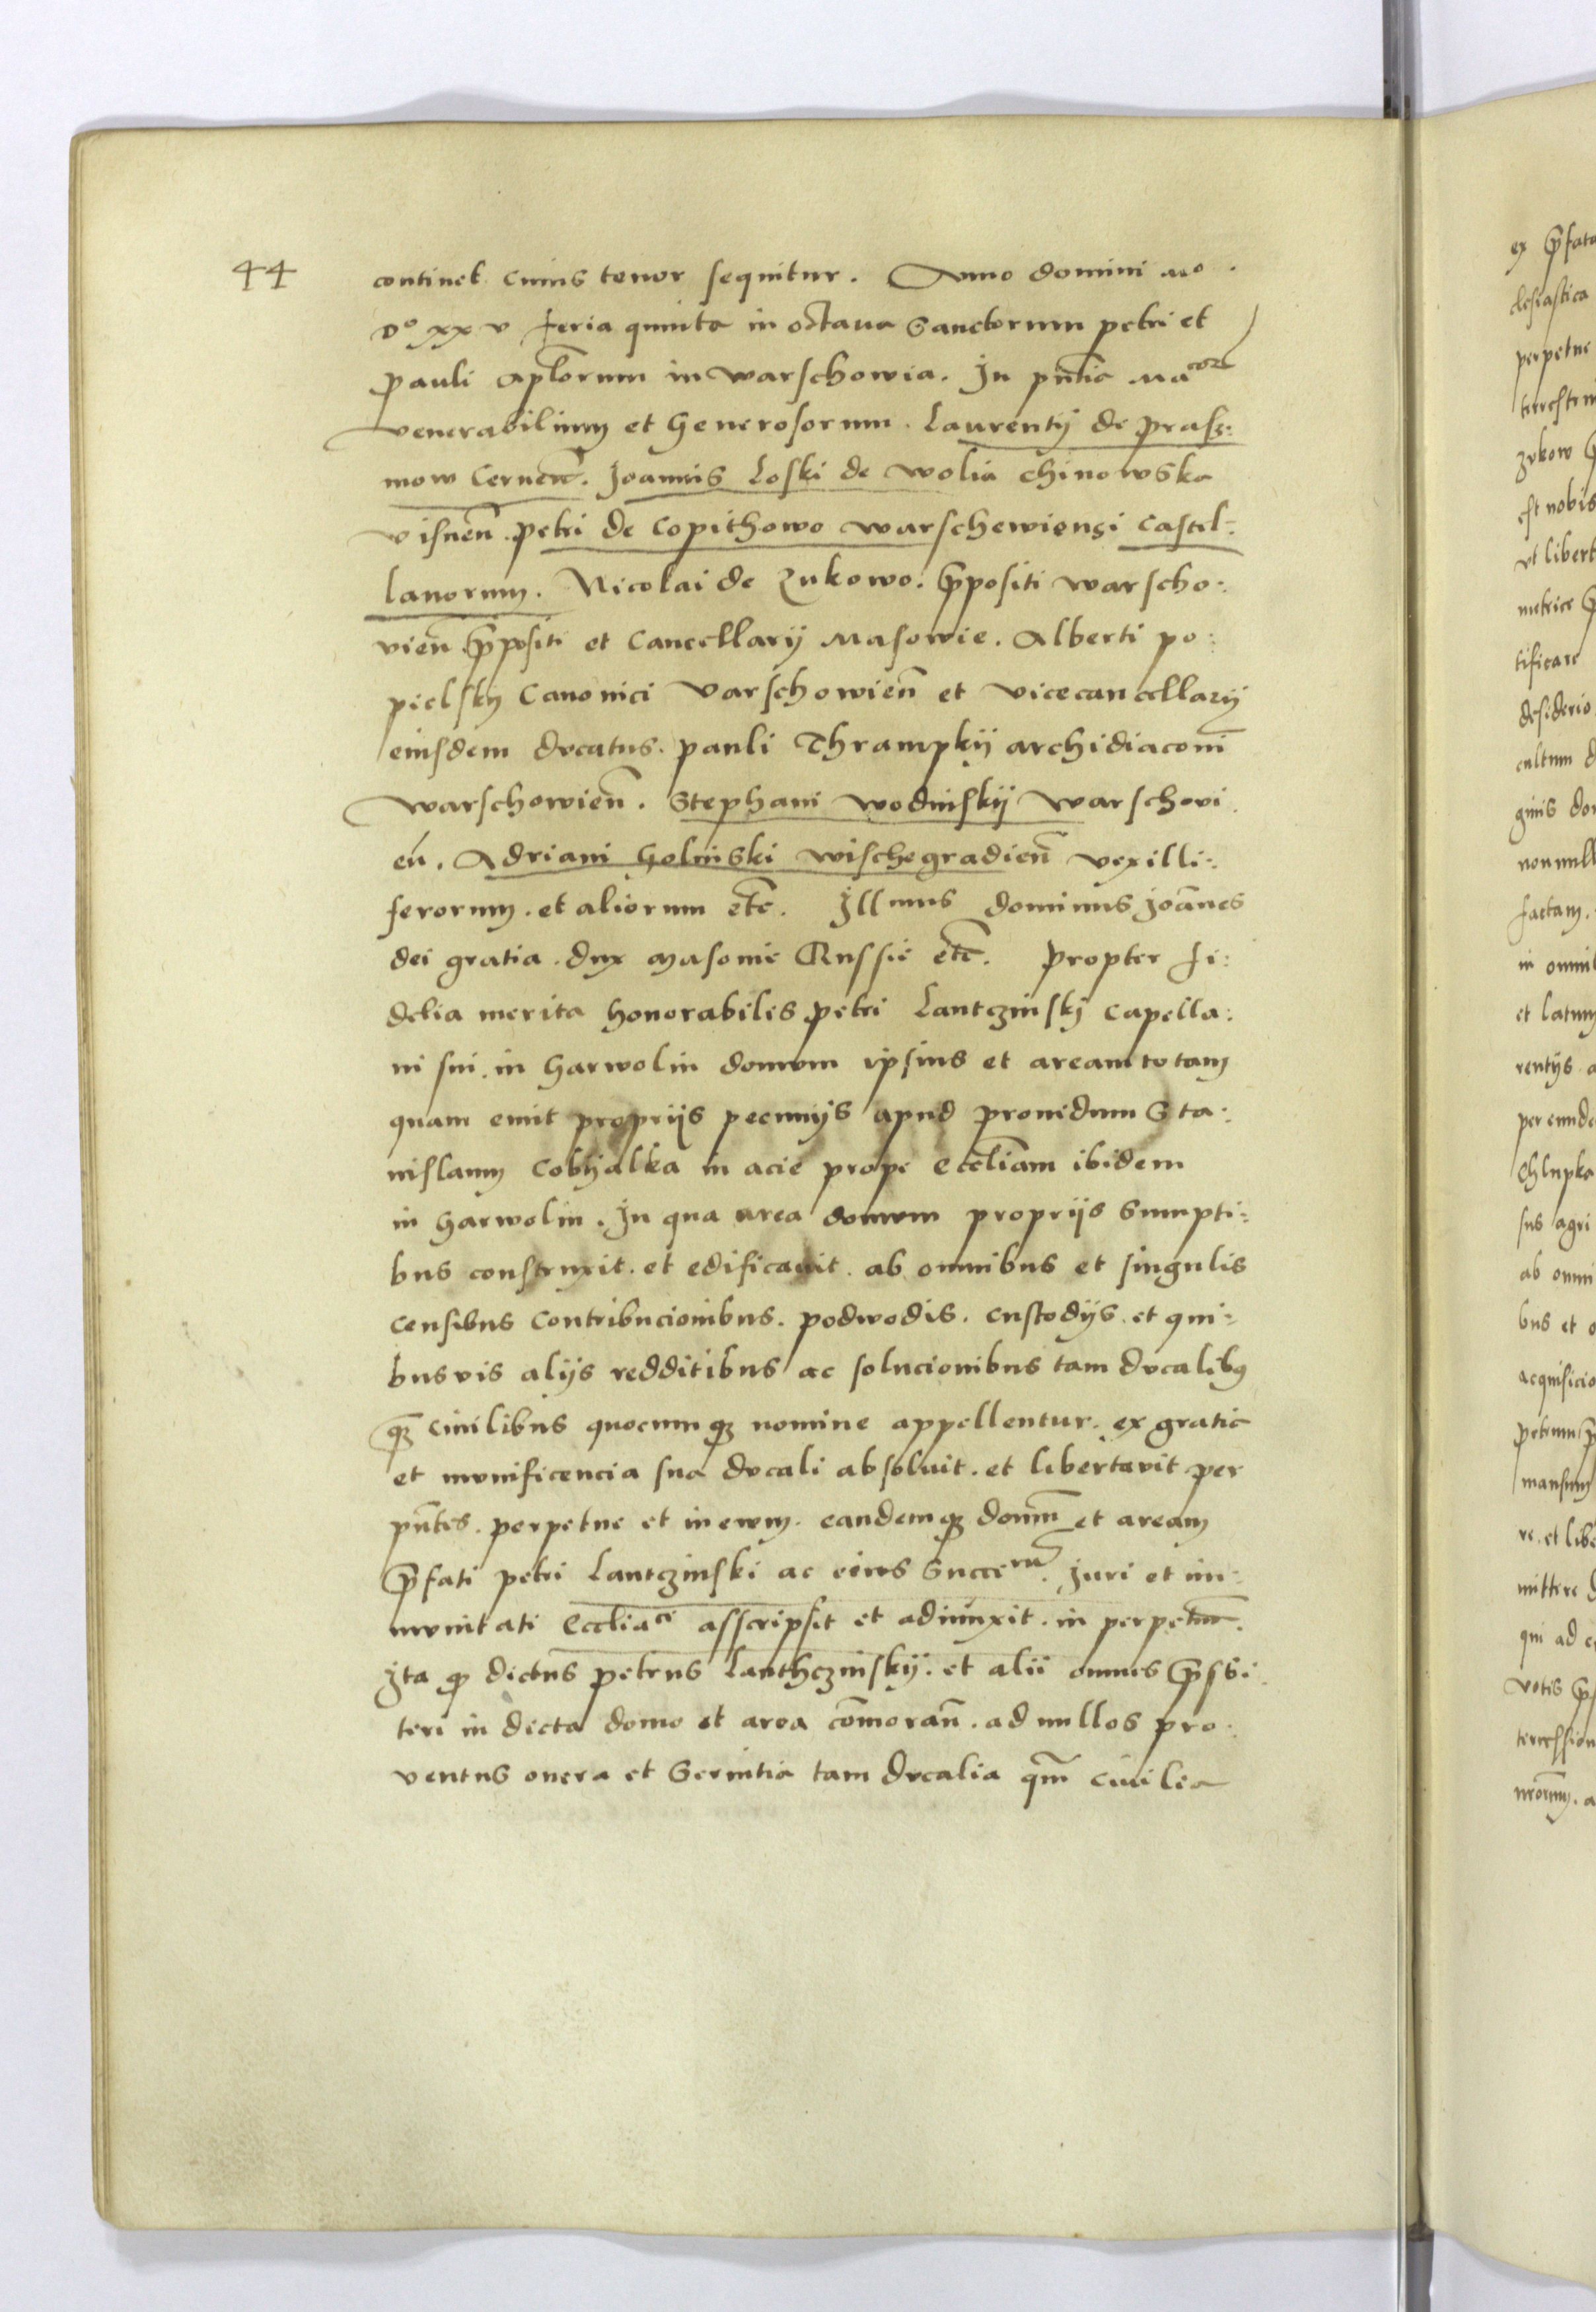 44
continet cuius tenor sequitur. Anno domini Mo.
Do xx v feria quinta in octaua Sanctorum petri et
pauli apłorum in warschowia. In pntia Macor
venerabilium et Generosorum. Laurentij de prasz:
mow Cernen. Joannis Loski de wolia chinowska
visnen. petri de Copithowo warschewiensi castel:
lanorum. Nicolai de Zukowo. ppositi warscho:
vien ppositi et Cancellarij Masowie. Alberti po:
pielsky Canonici varschowien et vicecancellarij
eiusdem ducatus. pauli Thrampkij archidiaconi
warschowien. Stephani wodinskij warschovi
en. Adriani Golniski wischegradien vexilli:
ferorum. et aliorum etc. Illmus dominus Joanes
dei gratia. dux masouie Russie etc. propter fi:
delia merita honorabilis petri Lantczinskj capella:
ni sui. in Garwolin domum ipsius et aream totam
quam emit proprijs pecunijs apud prouidum Sta:
nislaum Cobyalka in acie prope eccliam ibidem
in Garwolin. In qua area domum proprijs Sumpti:
bus construxit. et edificauit. ab omnibus et singulis
censibus contribucionibus. podwodis. custodijs. et qui:
busvis alijs redditibus ac solucionibus tam ducalibus
qz ciuilibus quocumqz nomine appellentur. ex gratia
et munificencia sua ducali absoluit. et libertavit per
pntes. perpetue et in ewm. eandemqz domum et aream
pfati petri Lantczinski ac eius Succeru. Juri et im:
munitati Eccliaci asscripsit et adiunxit. in perpetuum.
Ita qz dictus petrus Lanthczinskij. et alii omnes psbi
teri in dicta domo et area comoran. ad nullos pro:
ventus onera et Seruitia tam ducalia qm ciuilia